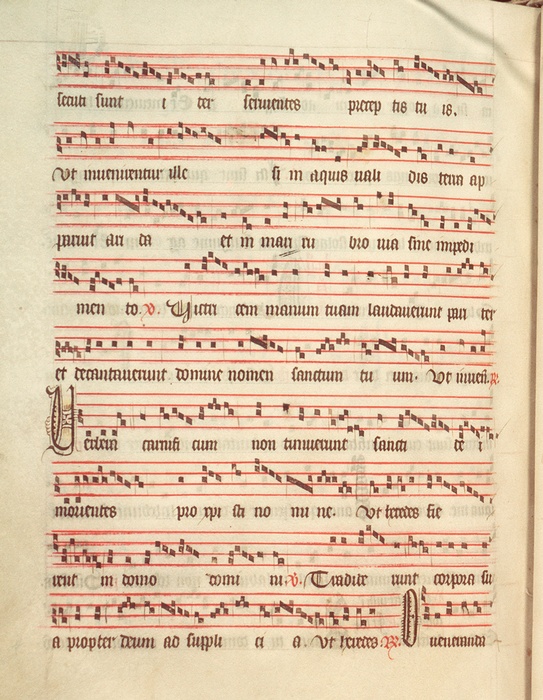 secuti sunt i ter seruientes precep tis tu is.
Ut inuenirentur ille si in aquis uali dis terra ap
paruit ari da et in mari ru bro uia sine impedi
men to. v. Uictri cem manum tuam laudauerunt pari ter
et decantauerunt domine nomen sanctum tu um. Ut inueni. R.
Uerbera carnifi cum non timuerunt sancti de i
morientes pro xpi sti no mi ne. Ut heredes fie
rent in domo domi ni. v. Tradide runt corpora su
a propter deum ad suppli ci a. Ut heredes. R. O ueneranda